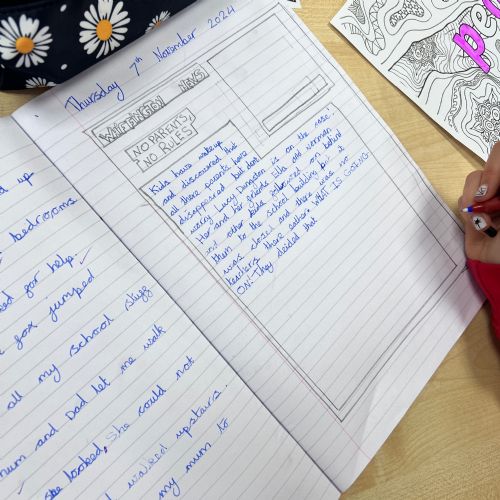 d up
bedrooms
ed for help.
fox jumped
all my school stuff
mum and Dad let me walk
She looked. She could not
I walked upstairs.
my mum to
Thursday 7th November 2024
WHITTINGTON NEWS
NO PARENTS
NO RULES
Kids have wakeup
and discovered that
all there parents have
disappeared but dont
worry Lucy Dunston is on the case.
Her and her friends Ella and Norman
and other kids followed on behind
them to the school building but it
was closed and there was no
teachers there either WHAT IS GOING
ON. They decided that
pe